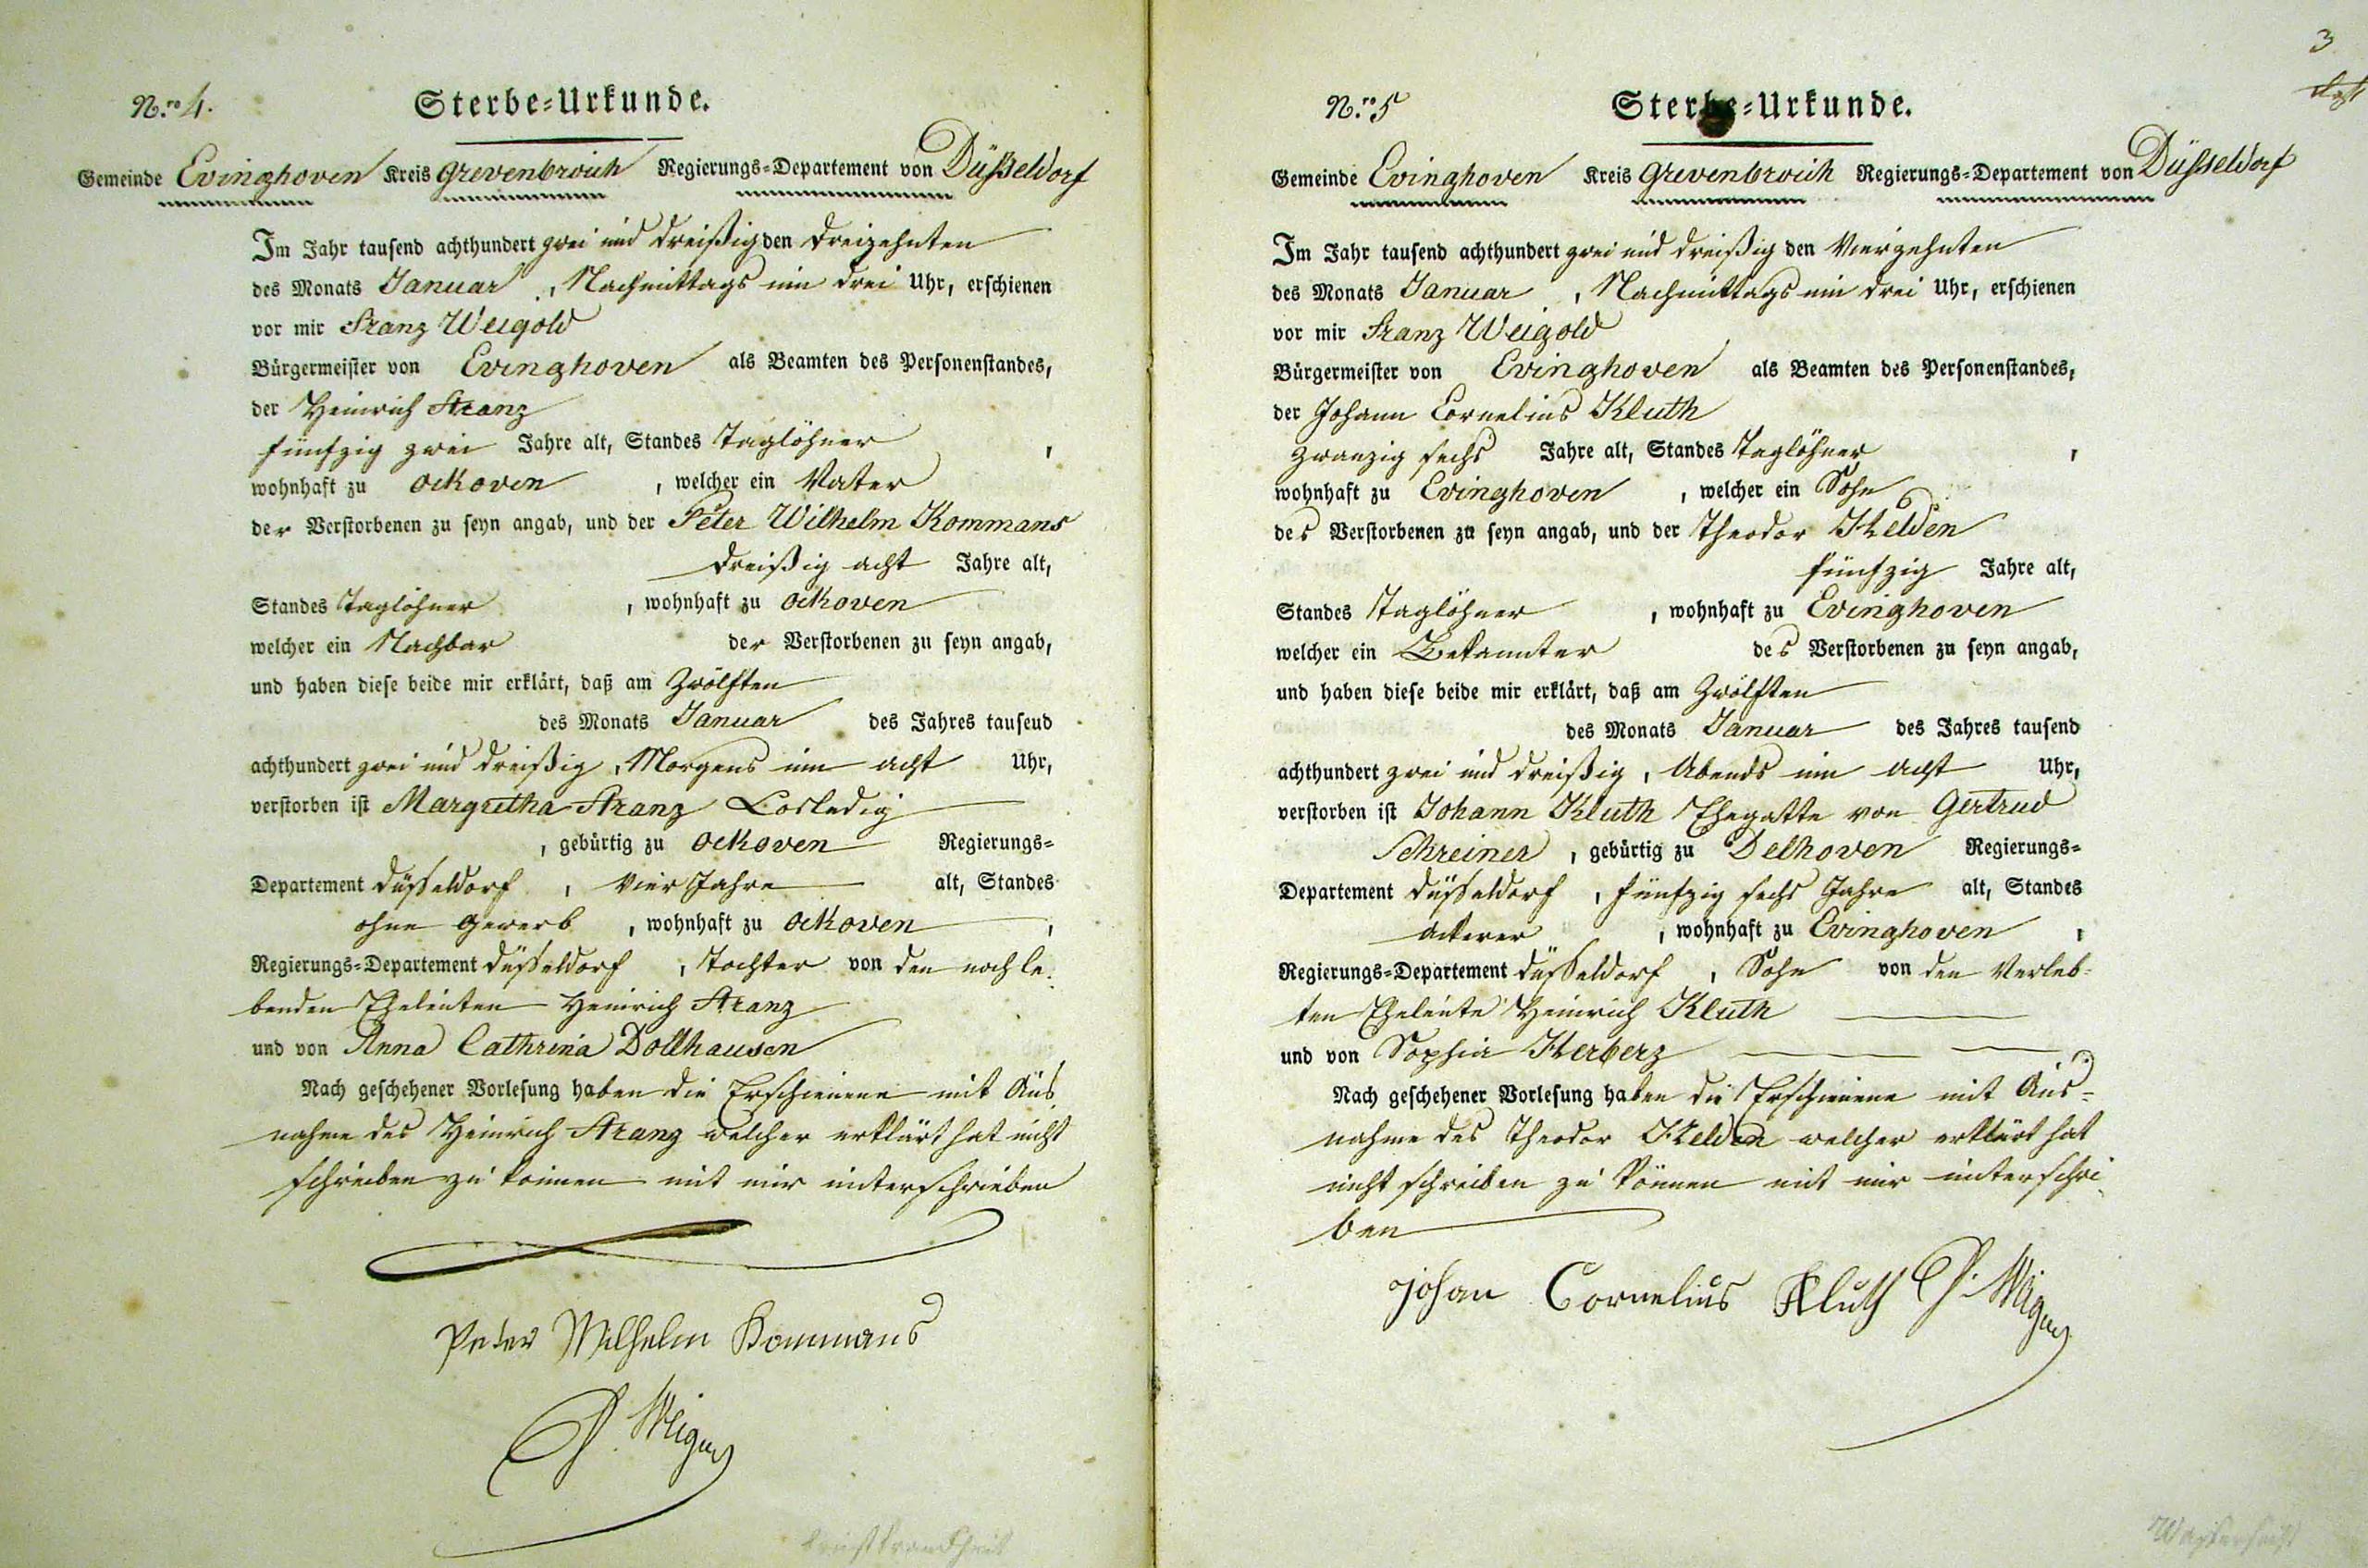 N.ro 4.
Sterbe=Urkunde.
Gemeinde Evinghoven Kreis Grevenbroich Regierungs=Departement von Düsseldorf
Im Jahr tausend achthundert zwei und dreißig den dreizehnten
des Monats Januar, Nachmittags um drei Uhr, erschienen
vor mir Franz Weigold
Bürgermeister von Evinghoven als Beamten des Personenstandes,
der Heinrich Kranz
fünfzig zwei Jahre alt, Standes Taglöhner,
wohnhaft zu Oekoven, welcher ein Vater
der Verstorbenen zu seyn angab, und der Peter Wilhelm Kommans
dreißig acht Jahre alt,
Standes Taglöhner, wohnhaft zu Oekoven
welcher ein Nachbar der Verstorbenen zu seyn angab,
und haben diese beide mir erklärt, daß am Zwölften
des Monats Januar des Jahres tausend
achthundert zwei und dreißig, Morgens um acht Uhr,
verstorben ist Margretha Kranz
, gebürtig zu Oekoven Regierungs=
Departement Düsseldorf, vier Jahre alt, Standes
ohne Gewerb, wohnhaft zu Oekoven,
Regierungs=Departement Düsseldorf, Tochter von den noch le=
benden Eheleuten Heinrich Kranz
und von Anna Cathrina Dollhausen
Nach geschehener Vorlesung haben die Erschienene mit Aus
nahme des Heinrich Kranz welcher erklärt hat nicht
schreiben zu können mit mir unterschrieben
Peter Wilhelm Kommans
3
N.ro 5
Sterbe=Urkunde.
Gemeinde Evinghoven Kreis Grevenbroich Regierungs=Departement von Düsseldorf
Im Jahr tausend achthundert zwei und dreißig den Vierzehnten
des Monats Januar, Nachmittags um drei Uhr, erschienen
vor mir Franz Weigold
Bürgermeister von Evinghoven als Beamten des Personenstandes,
der Johann Cornelius Kluth
zwanzig sechs Jahre alt, Standes Taglöhner,
wohnhaft zu Evinghoven, welcher ein Sohn
des Verstorbenen zu seyn angab, und der Theodor Helden
fünfzig Jahre alt,
Standes Taglöhner, wohnhaft zu Evinghoven
welcher ein Bekannter des Verstorbenen zu seyn angab,
und haben diese beide mir erklärt, daß am Zwölften
des Monats Januar des Jahres tausend
achthundert zwei und dreißig, Abends um acht Uhr,
verstorben ist Johann Kluth Ehegatte von Gertrud
Schreiner, gebürtig zu Delhoven Regierungs=
Departement Düsseldorf, fünfzig sechs Jahre alt, Standes
Ackerer, wohnhaft zu Evinghoven,
Regierungs=Departement Düsseldorf, Sohn von den Verleb=
ten Eheleute Heinrich Kluth
und von Sophia Herberz
Nach geschehener Vorlesung haben die Erschienene mit Aus=
nahme des Theodor Helden welcher erklärt hat
nicht schreiben zu können mit mir unterschrie
ben
Johan Cornelius Kluth
Wassersucht